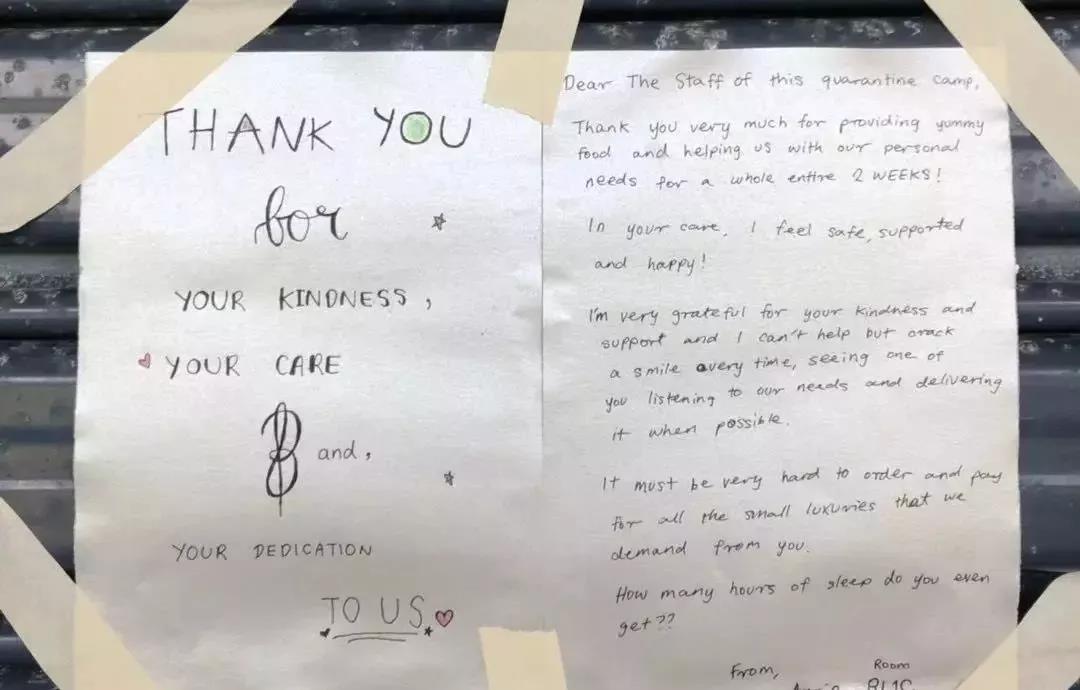 THANK YOU
for
YOUR KINDNESS,
YOUR CARE
and,
YOUR DEDICATION
TO US
Dear The Staff of this quarantine camp,
Thank you very much for providing yummy
food and helping us with our personal
needs for a whole entire 2 WEEKS!
In your care, I feel safe, supported
and happy!
I'm very grateful for your kindness and
support and I can't help but crack
a smile every time, seeing one of
you listening to our needs and delivering
it when possible.
It must be very hard to order and pay
for all the small luxuries that we
demand from you.
How many hours of sleep do you even
get??
From,
Room